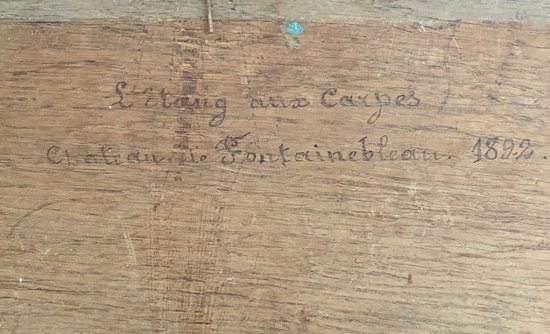 L'Etang aux Carpes
Chateau de Fontainebleau. 1892.